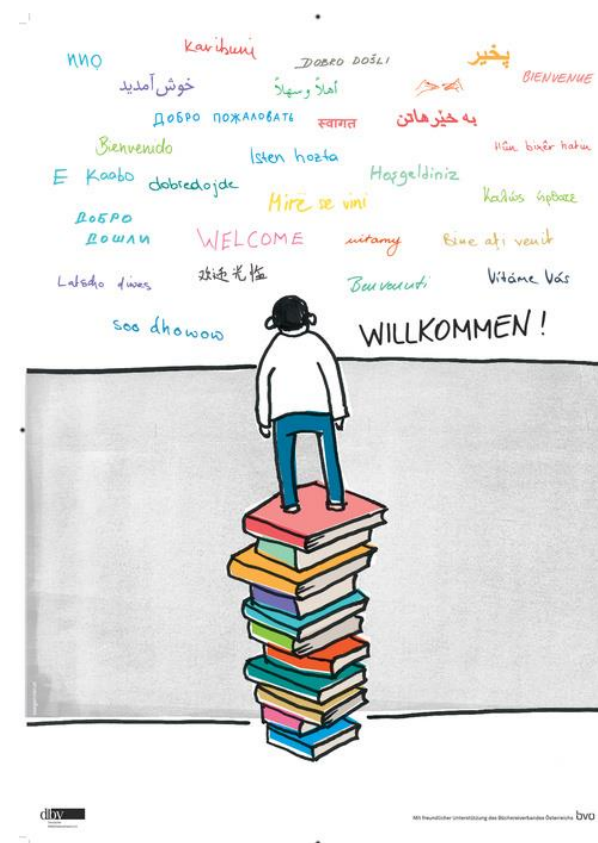 Karibuni
DOBRO DOŠLI
پخیر
BIENVENUE
خوش آمدید
أهلاً وسهلاً
ДОБРО ПОЖАЛОВАТЬ
स्वागत
به خێرهاتن
Bienvenido
Isten hozta
Hûn bixêr hatin
E Kaabo
dobredojde
Hoşgeldiniz
Mirë se vini
ДОБРО
ДОШЛИ
WELCOME
witamy
Bine aţi venit
Latscho diwes
欢迎光临
Benvenuti
Vítáme Vás
soo dhowow
WILLKOMMEN!
dbv
Mit freundlicher Unterstützung des Büchereiverbandes Österreichs bvö